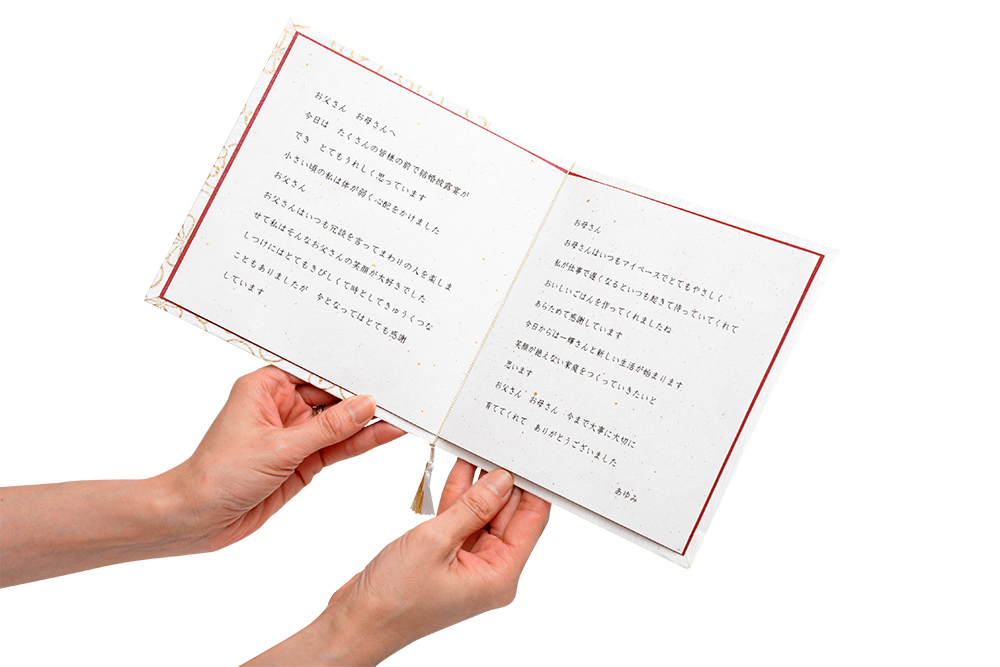 お父さん　お母さんへ
今日は　たくさんの皆様の前で結婚披露宴が
でき　とてもうれしく思っています
小さい頃の私は体が弱く心配をかけました
お父さん
お父さんはいつも冗談を言ってまわりの人を楽しま
せて私はそんなお父さんの笑顔が大好きでした
しつけにはとてもきびしくて時としてきゅうくつな
こともありましたが　今となってはとても感謝
しています
お母さん
お母さんはいつもマイペースでとてもやさしく
私が仕事で遅くなるといつも起きて待っていてくれて
おいしいごはんを作ってくれましたね
あらためて感謝しています
今日からは一輝さんと新しい生活が始まります
笑顔が絶えない家庭をつくっていきたいと
思います
お父さん　お母さん　今まで大事に大切に
育ててくれて　ありがとうございました
あゆみ